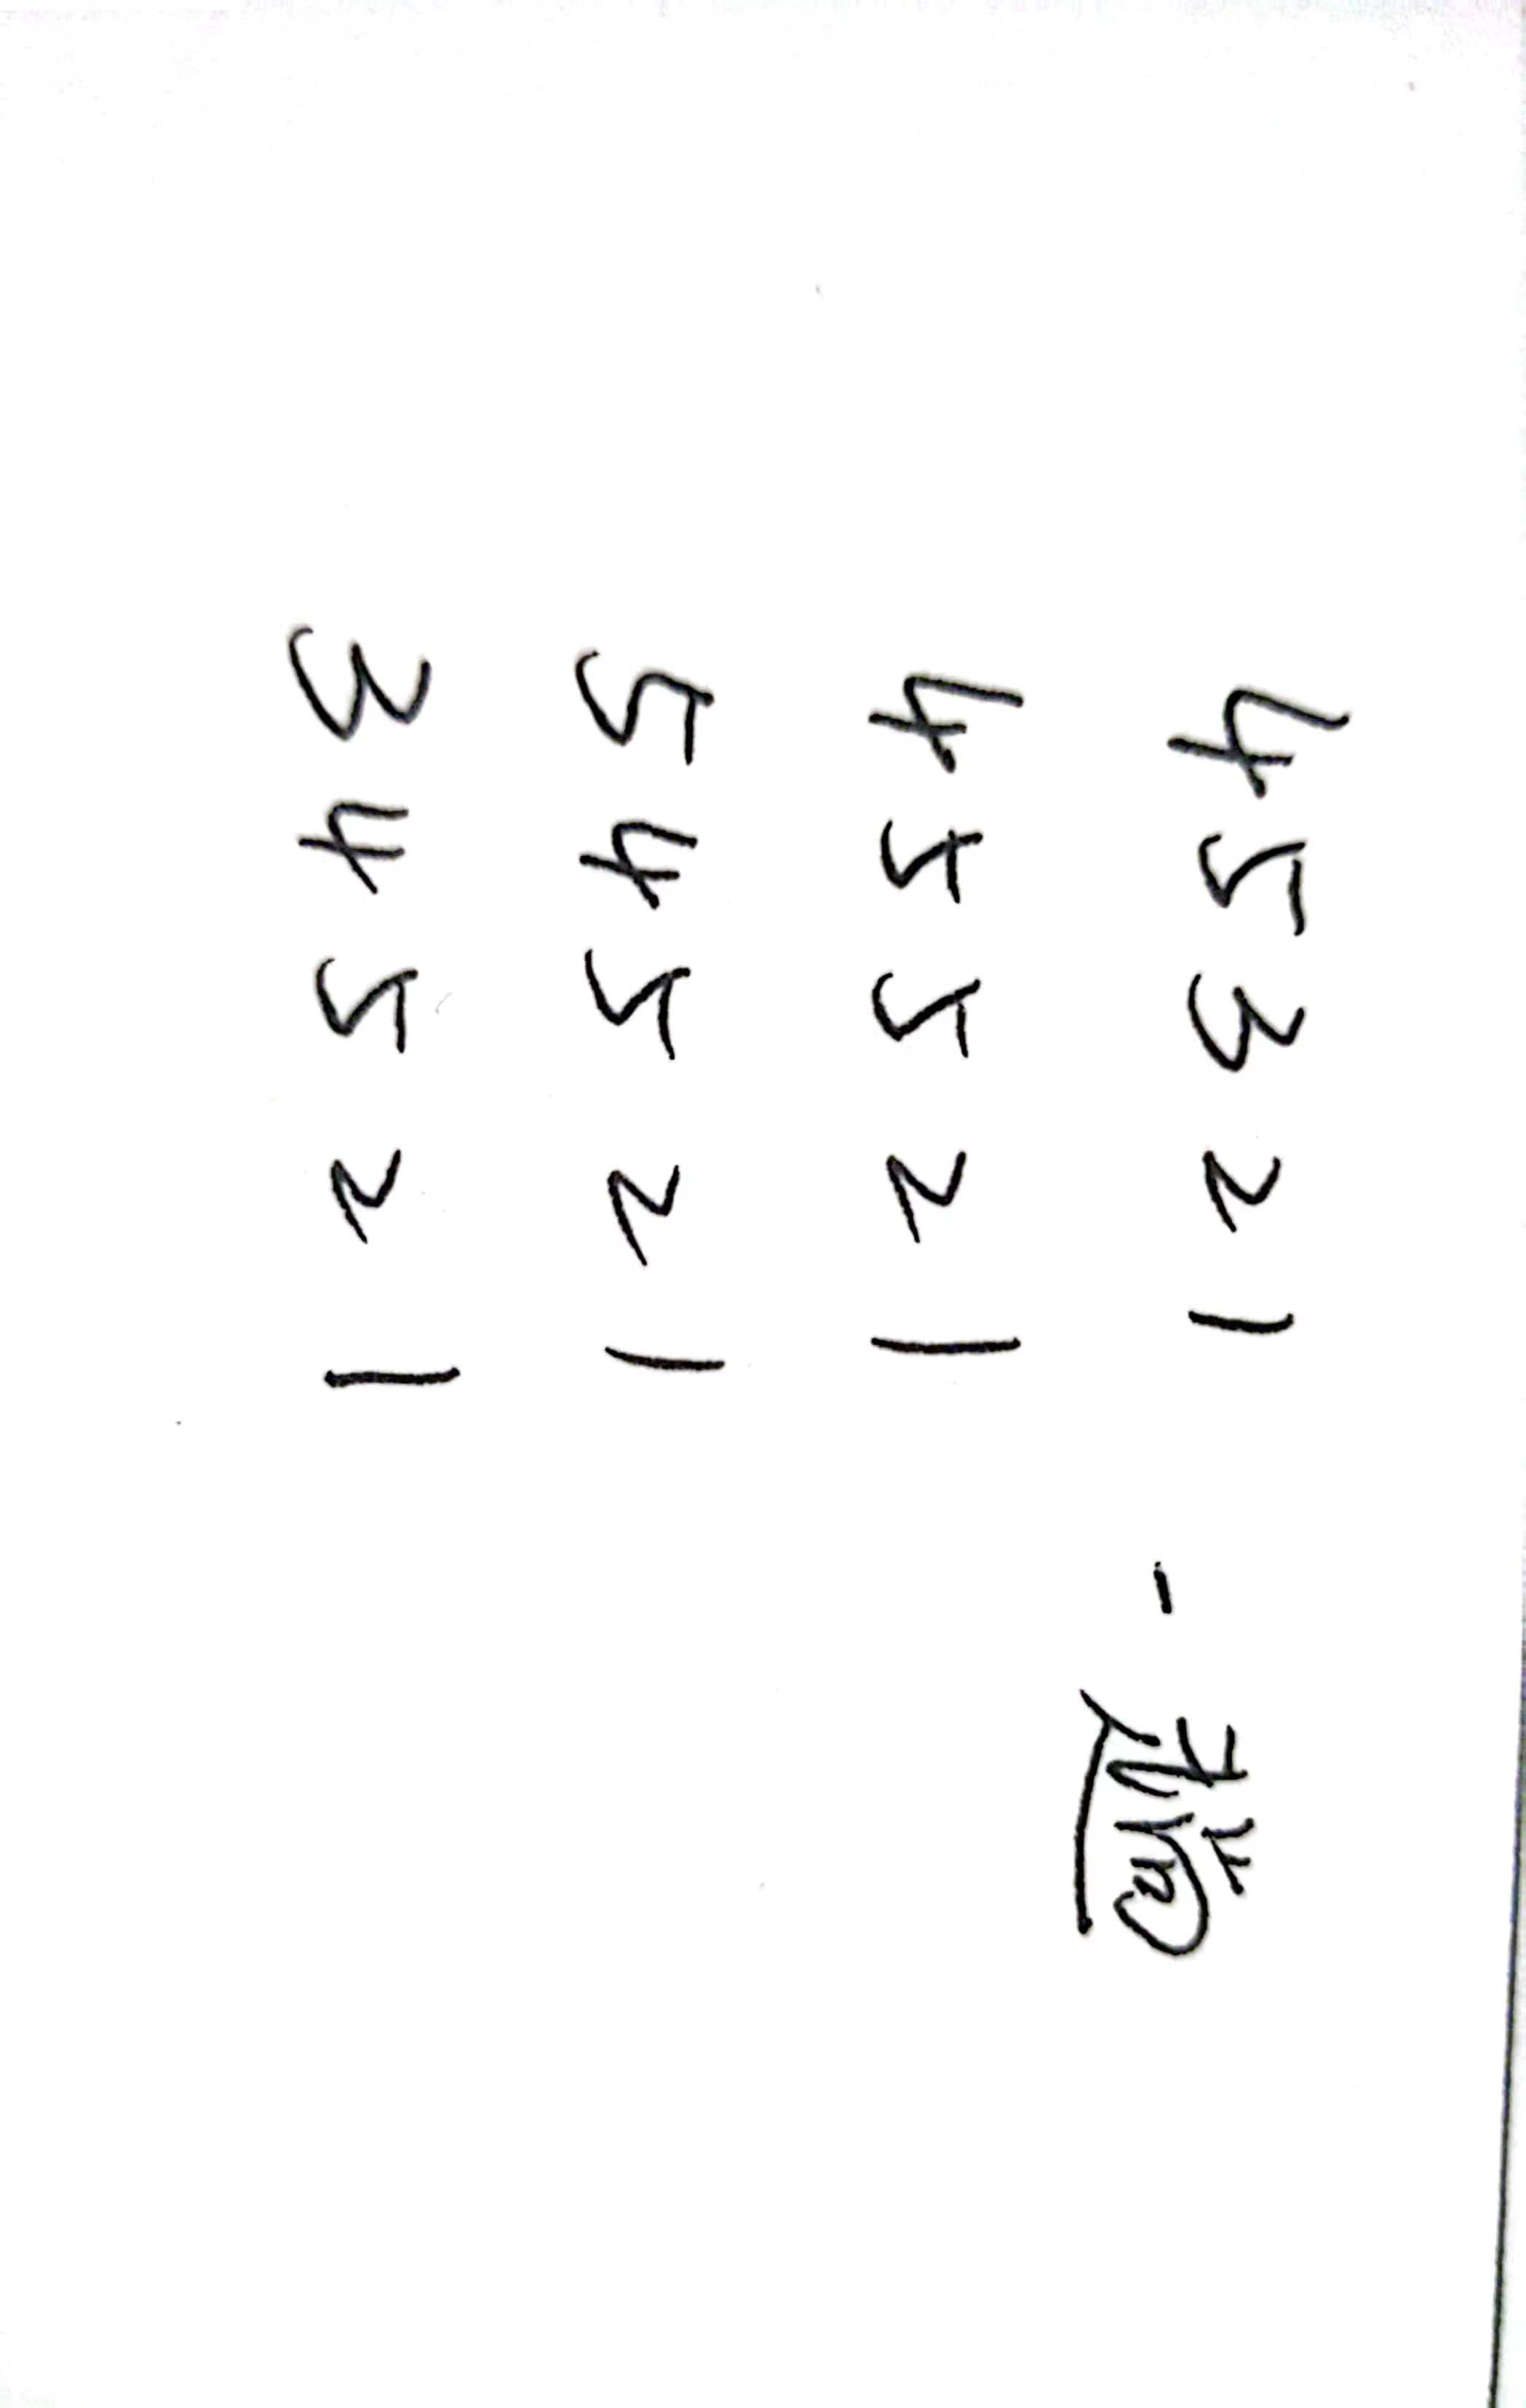 4 5 3 2 1
4 5 5 2 1
5 4 5 2 1
3 4 5 2 1